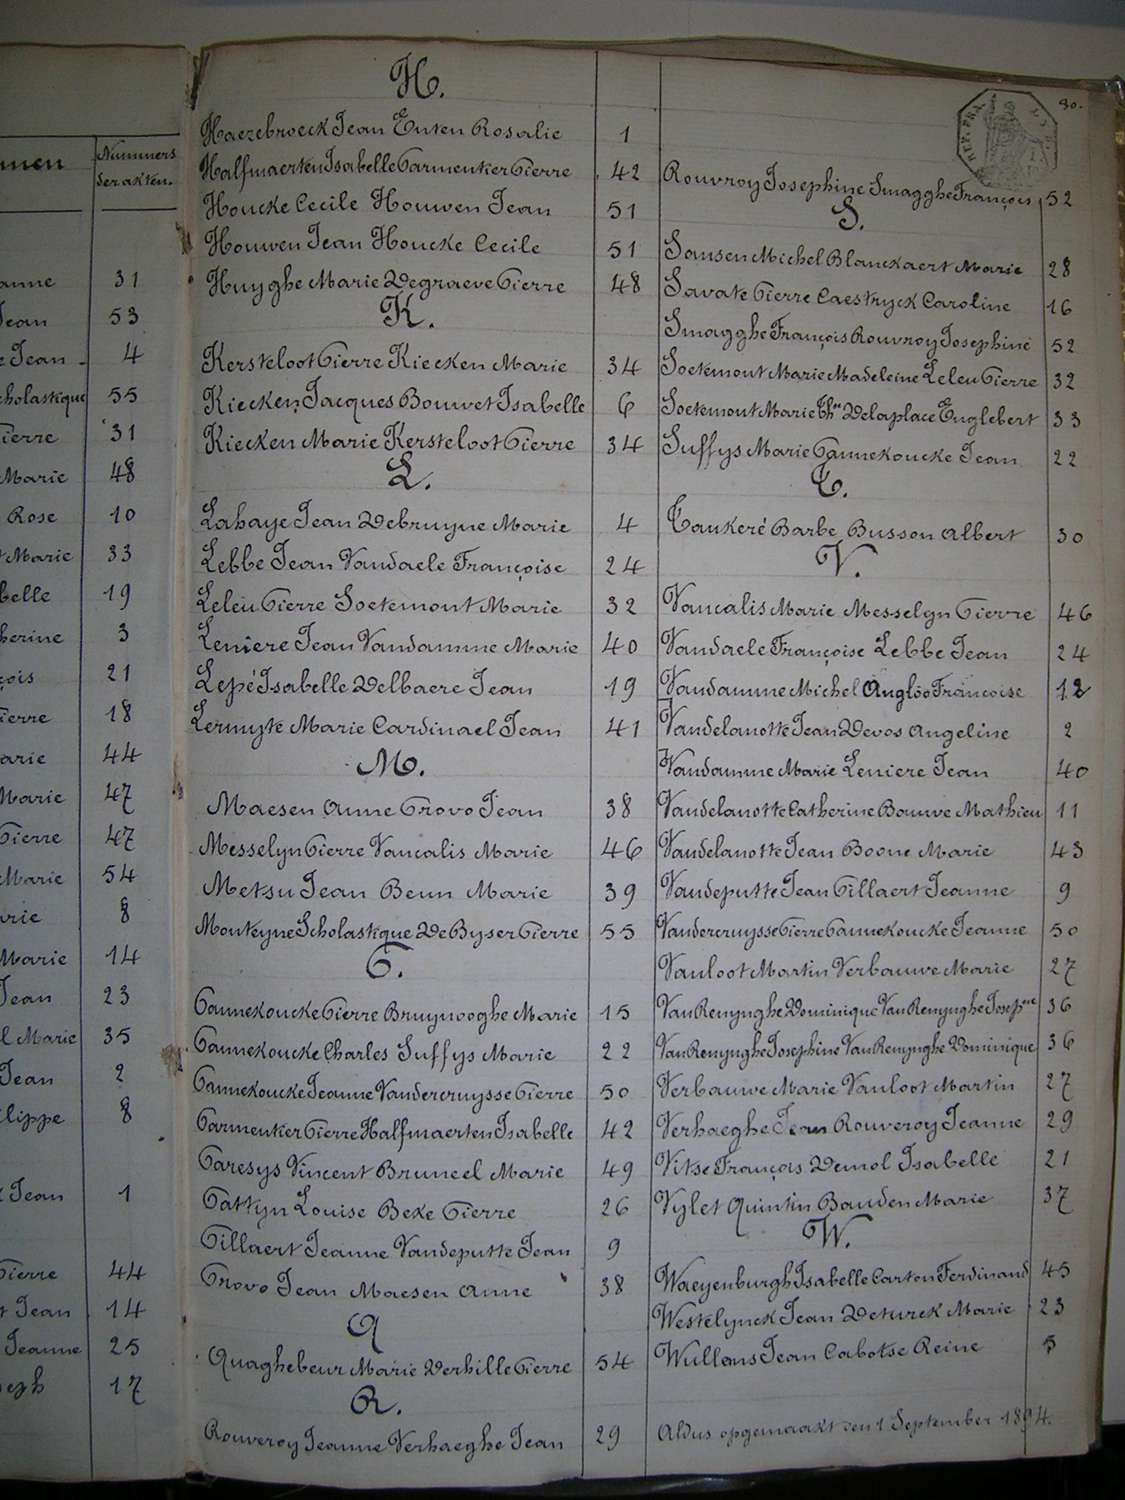 nmen
Nummers
der akten.
anne 31
Jean 53
e Jean 4
cholastique 55
Pierre 31
Marie 48
Rose 10
t Marie 33
belle 19
herine 3
çois 21
Pierre 18
arie 44
Marie 47
Pierre 47
Marie 54
arie 8
Marie 14
Jean 23
l Marie 35
Jean 2
ilippe 8
k Jean 1
Pierre 44
t Jean 14
Jeanne 25
seph 17
H.
Haezebroeck Jean Enten Rosalie 1
Halfmaerten Isabelle Parmentier Pierre 42
Houcke Cecile Houwen Jean 51
Houwen Jean Houcke Cecile 51
Huyghe Marie Degraeve Pierre 48
K.
Kersteloot Pierre Kiecken Marie 34
Kiecken Jacques Bouvet Isabelle 6
Kiecken Marie Kersteloot Pierre 34
L.
Lahaye Jean Debruyne Marie 4
Lebbe Jean Vandaele Françoise 24
Leleu Pierre Soetemont Marie 32
Leniere Jean Vandamme Marie 40
Lepé Isabelle Delbaere Jean 19
Lermyte Marie Cardinael Jean 41
M.
Maesen Anne Provo Jean 38
Messelyn Pierre Vancalis Marie 46
Metsu Jean Beun Marie 39
Monteyne Scholastique De Byser Pierre 55
P.
Pannekoucke Pierre Bruynooghe Marie 15
Pannekoucke Charles Suffys Marie 22
Pannekoucke Jeanne Vandercruysse Pierre 50
Parmentier Pierre Halfmaerten Isabelle 42
Paresys Vincent Bruneel Marie 49
Pattyn Louise Beke Pierre 26
Pillaert Jeanne Vandeputte Jean 9
Provo Jean Maesen Anne 38
Q
Quaghebeur Marie Verhille Pierre 54
R.
Rouveroy Jeanne Verhaeghe Jean 29
30.
REP. FRA
Rouvroy Josephine Smagghe François 52
S.
Sansen Michel Blanckaert Marie 28
Savate Pierre Caestryck Caroline 16
Smagghe François Rouvroy Josephine 52
Soetemont Marie Madeleine Leleu Pierre 32
Soetemont Marie Thse Delaplace Englebert 33
Suffys Marie Pannekoucke Jean 22
T.
Tankeré Barbe Busson Albert 30
V.
Vancalis Marie Messelyn Pierre 46
Vandaele Françoise Lebbe Jean 24
Vandamme Michel Angloo Françoise 12
Vandelanotte Jean Devos Angeline 2
Vandamme Marie Leniere Jean 40
Vandelanotte Catherine Bauwe Mathieu 11
Vandelanotte Jean Boone Marie 43
Vandeputte Jean Pillaert Jeanne 9
Vandercruysse Pierre Pannekoucke Jeanne 50
Vanloot Martin Verbauwe Marie 27
Van Renynghe Dominique Van Renynghe Josephine 36
Van Renynghe Josephine Van Renynghe Dominique 36
Verbauwe Marie Vanloot Martin 27
Verhaeghe Jean Rouveroy Jeanne 29
Vitse François Demol Isabelle 21
Vylet Quintin Bauden Marie 37
W.
Waeyenburgh Isabelle Carton Ferdinand 45
Westelynck Jean Deturck Marie 23
Wullens Jean Cabotse Reine 5
Aldus opgemaakt den 1 September 1894.